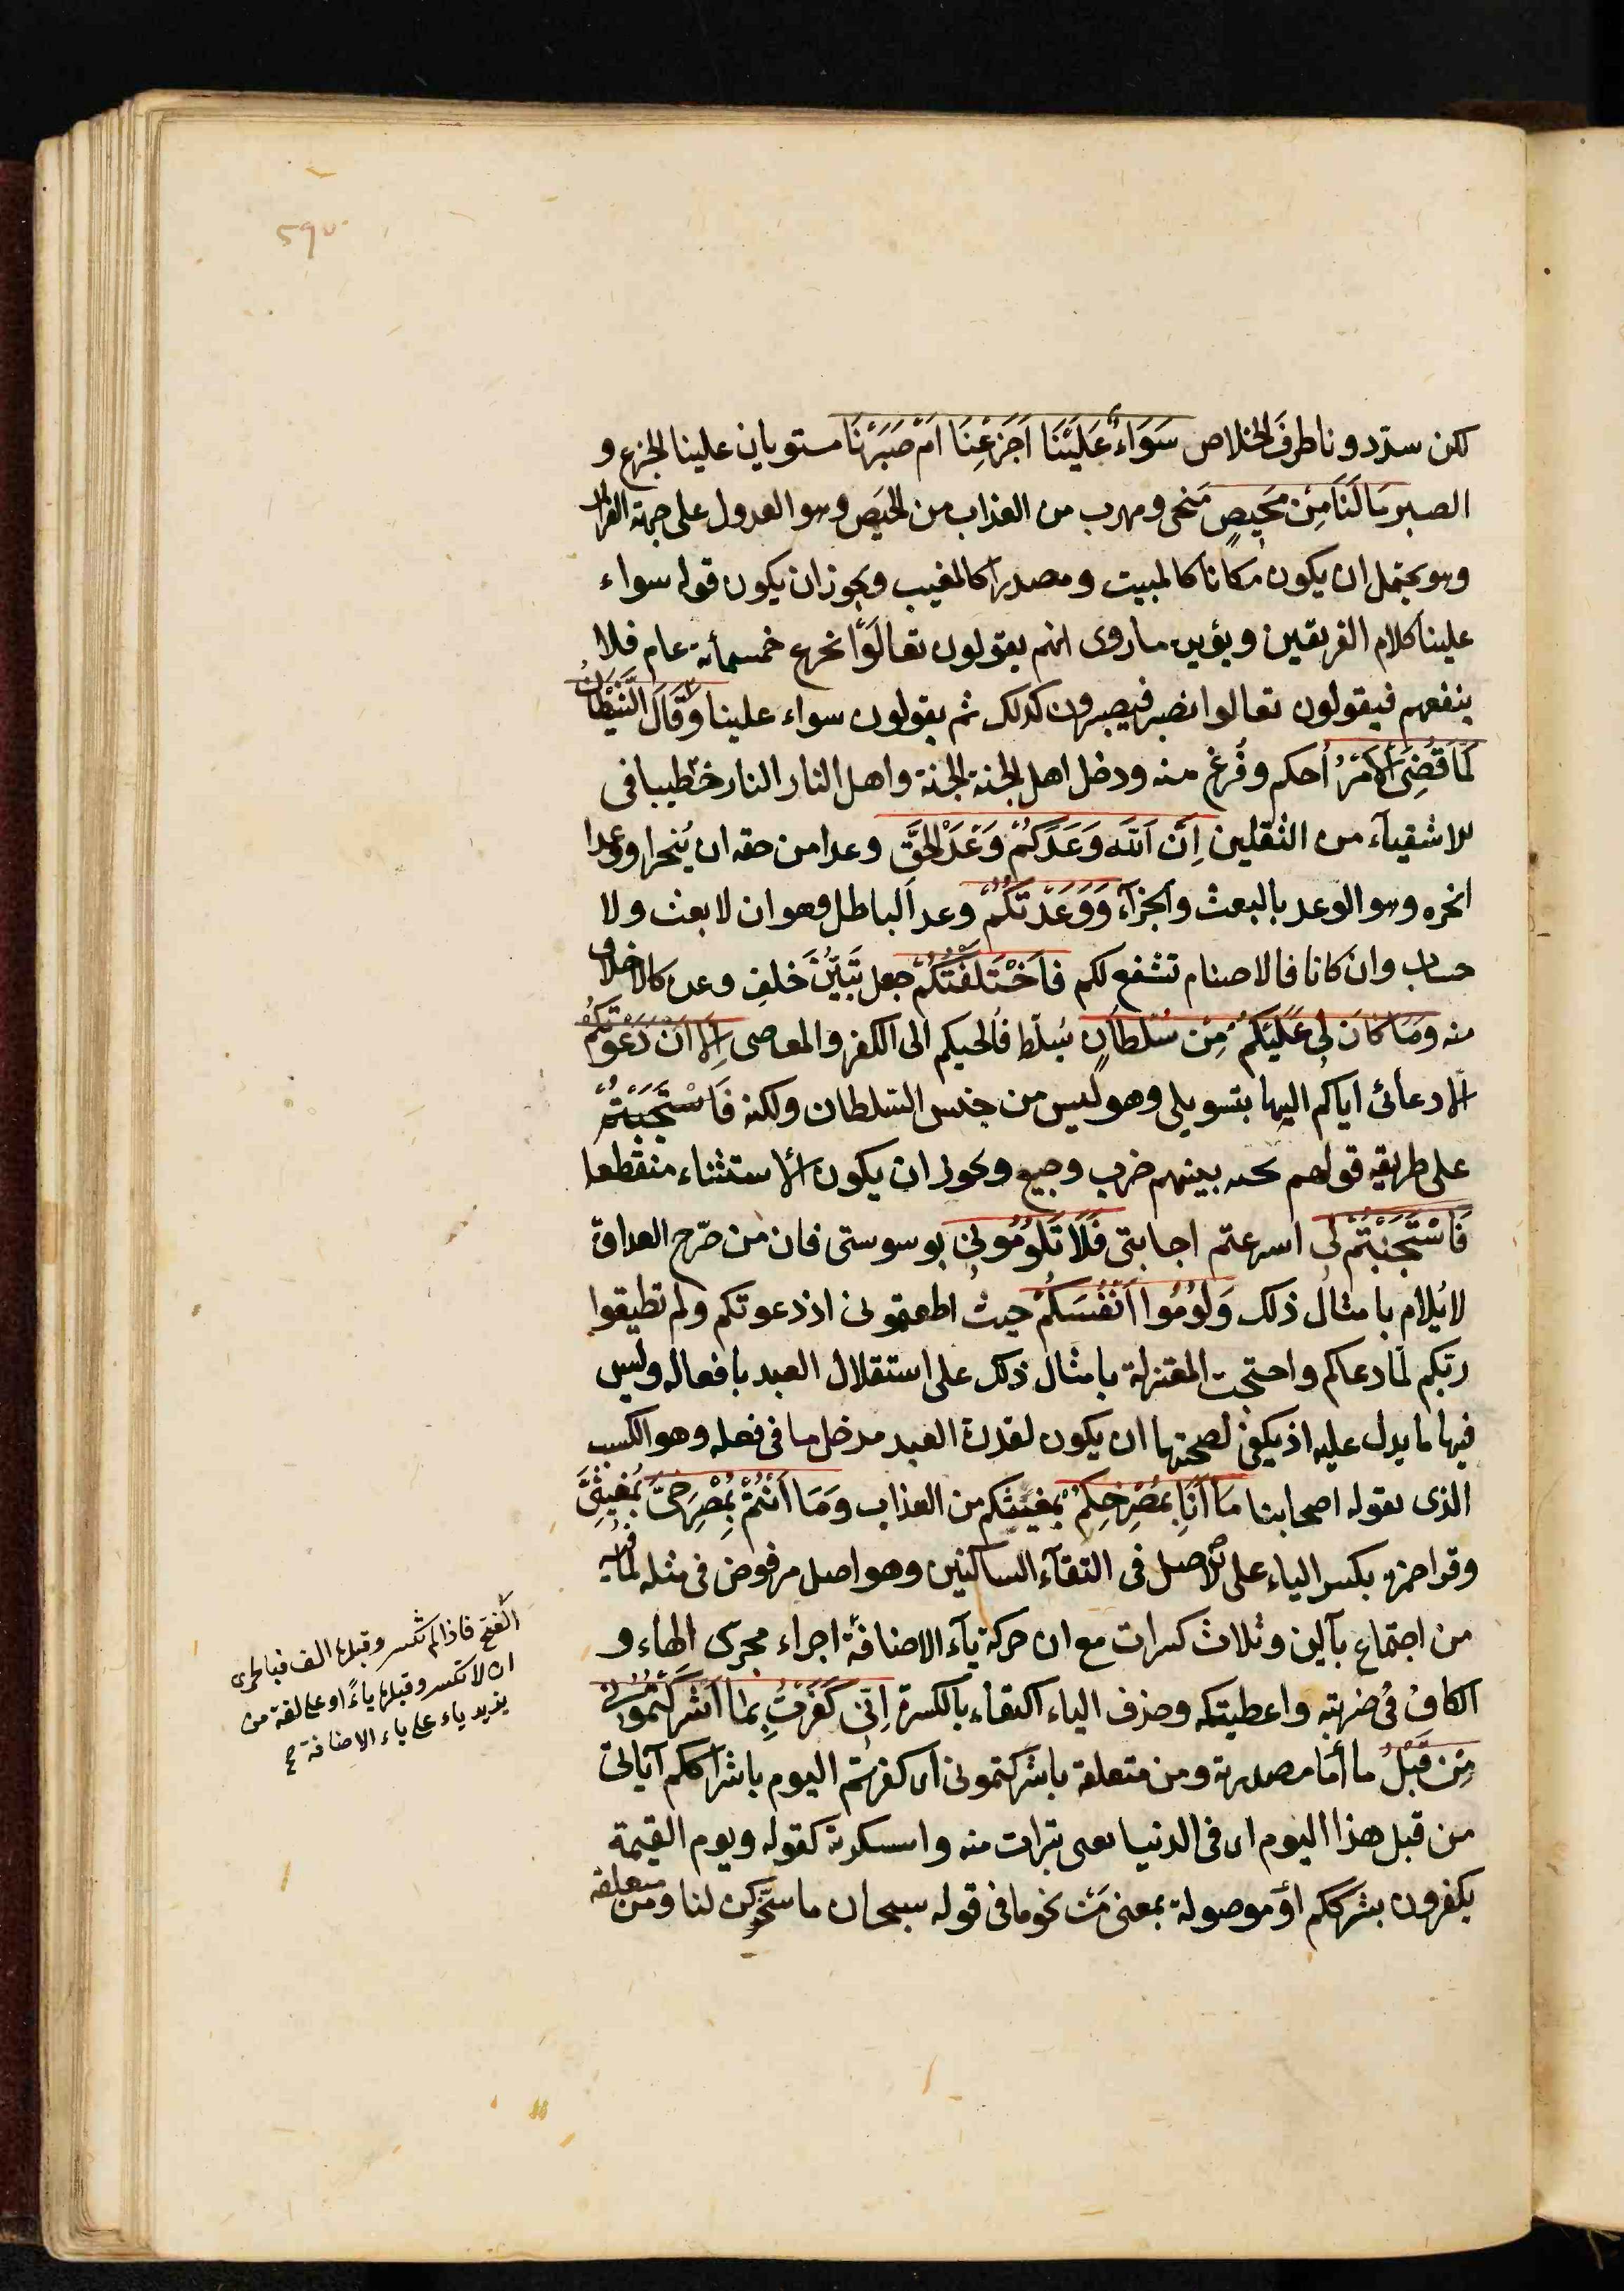 لكن سدّ دوننا طرق الخلاص سَوَاءٌ عَلَيْنَا اَجَزِعْنَا اَمْ صَبَرْنَا مستويان علينا الجزع و
الصبر مَا لَنَا مِنْ مَحِيصٍ منجى ومهرب من العذاب من الحَيص وهو العدول على جهة الفرار
وهو يحتمل ان يكون مكانا كالمبيت ومصدرا كالمغيب ويجوز ان يكون قوله سواء
علينا كلام الفريقين ويؤيده ما روى انهم يقولون تعالَوْا نجزع فيجزعون خمسمأئة عام فلا
ينفعهم فيقولون تعالوا نصبر فيصبرون كذلك ثم يقولون سواء علينا وَقَالَ الشَّيْطَانُ
لَمَّا قُضِىَ الْاَمْرُ اُحكم وفُرغ منه ودخل اهل الجنة الجنة واهل النار النار خطيبا فى
الاشقيآء من الثقلين اِنَّ اللهَ وَعَدَكُمْ وَعْدَ الْحَقِّ وعدا من حقه ان يُنجز او وعدا
انجزه وهو الوعد بالبعث والجزآء وَوَعَدْتُكُمْ وعد الباطل وهو ان لا بعث ولا
حساب وان كانا فالاصنام تشفع لكم فَاَخْتَلَفْتُكُمْ جعل تَبَيُّنَ خلفِ وعده كالاخلاف
منه وَمَا كَانَ لِى عَلَيْكُمْ مِنْ سُلْطَانٍ تسلّط فاُلجيكم الى الكفر والمعاصى اِلَّا اَنْ دَعَوْتُكُمْ
الا دعائى اياكم اليها بتسويلى وهو ليس من جنس السّلطان ولكنه فَاسْتَجَبْتُمْ
على طريقة قولهم تحية بينهم ضرب وجيع ويجوز ان يكون الاستثناء منقطعا
فَاسْتَجَبْتُمْ لِى اسرعتم اجابتى فَلَا تَلُومُونِى بوسوستى فان من صرّح العداوة
لا يُلام بامثال ذلك وَلُومُوا اَنْفُسَكُمْ حيث اطعتمونى اذ دعوتكم ولم تطيعوا
ربّكم لمّا دعاكم واحتجت المعتزلة بامثال ذلك على استقلال العبد بافعاله وليس
فيها ما يدل عليه اذ يكفى لصحتها ان يكون لقدرة العبد مدخل ما فى فعله وهو الكسب
الذى يقوله اصحابنا مَا اَنَا بِمُصْرِخِكُمْ بمغيثكم من العذاب وَمَا اَنْتُمْ بِمُصْرِخِىَّ بمغيثِىَّ
وقرا حمزة بكسر الياء على الاصل فى التقآء الساكنين وهو اصل مرفوض فى مثله لما فيه
من اجتماع يآئين وثلاث كسرات مع ان حركة يآء الاضافة اجراء مجرى الهاء و
الكاف فى ضربته واعطيتكه وحذف الياء اكتفاء بالكسرة اِنِّى كَفَرْتُ بِمَا اَشْرَكْتُمُونِى
مِنْ قَبْلُ ما امّا مصدرية ومن متعلقة باشركتمونى اى كفرتم اليوم باشراككم اياى
من قبل هذا اليوم اى فى الدنيا بمعنى تبرات منه واستنكرته كقوله ويوم القيمة
يكفرون بشرككم او موصولة بمعنى مَنْ نحو ما فى قوله سبحان ما سخّركن لنا ومن متعلقة
الفتح فاذا لم تكسر وقبلها الف فبالحرى
ان لا تكسر وقبلها ياءٌ او على لغة من
يزيد ياء على ياء الاضافة صح